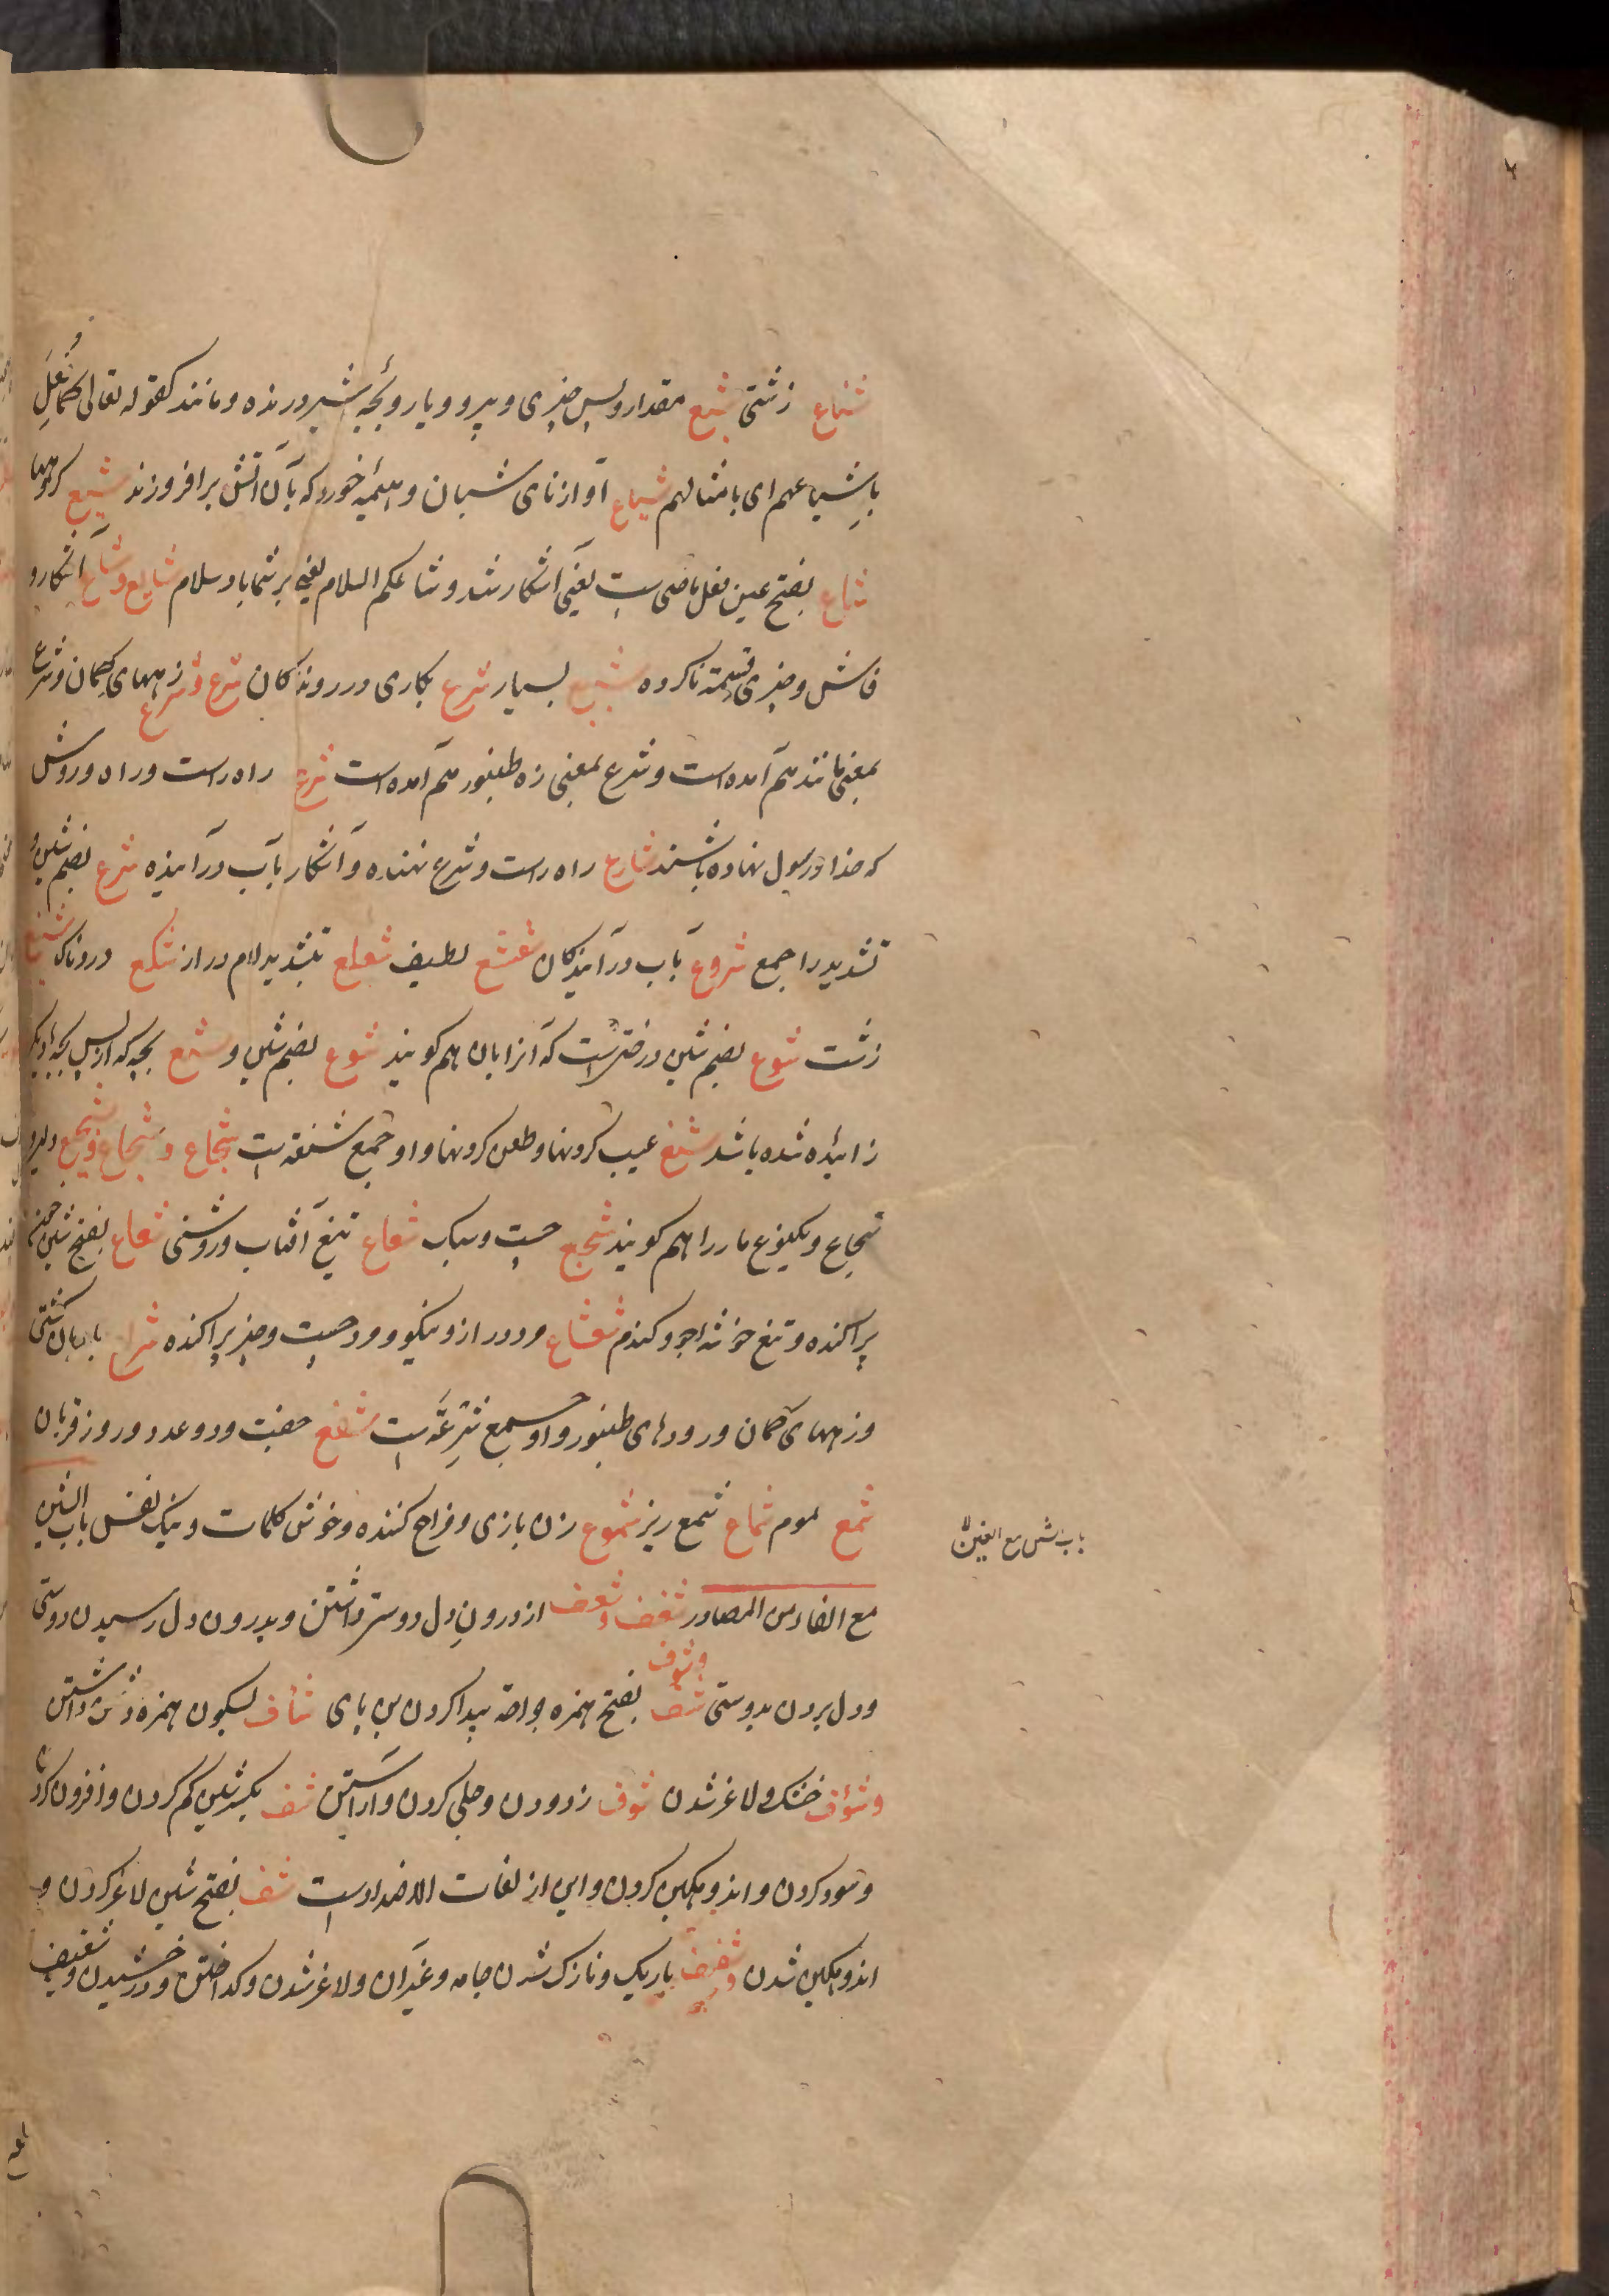 شناع زشتی شیع مقدار و پس چیزی و پیرو و یار و بچه شیر درنده و مانند کقوله تعالی کما فعل
باشیاعهم ای بامثالهم شیاع آواز نای شبان و هیمه خورد که بآن آتش برافروزند شیع کروهها
شاع بفتح عین فعل ماضی است یعنی آشکار شد و شاعکم السلام یعنی بر شما باد سلام شایع و شاع آشکار و
فاش و چیزی قسمت ناکرده شیع بسیار شرع بکاری درروندکان شرع و شرع زههای کمان و شرع
بمعنی مانند هم آمده است و شرع بمعنی زه طنبور هم آمده است شرع راه راست و راه و روش
که خدا و رسول نهاده باشند شارع راه راست و شرع نهنده و آشکار بآب درآینده شرع بضم شین و
تشدید را جمع شروع بآب درآیندکان شعشع لطیف شعلع بتشدید لام دراز شکع دردناک شنع
زشت شوع بضم شین درختی است که آنرا بان هم کویند شوع بضم شین و شیع بچه که از پس بچه دیکر
زائیده شده باشد شنع عیب کردنها و طعن کردنها و او جمع شنعة است شجاع و شجاع و شجیع دلیر و
شجاع و یکنوع مار را هم کویند شجع چست و سبک شعاع تیغ آفتاب و روشنی شعاع بفتح شین
پراکنده و تیغ خوشه جو و کندم شعشاع مرد دراز و نیکو و مرد چست و چیز پراکنده شراع بادبان کشتی
و زههای کمان و رودهای طنبور و او جمع شرعة است شفع جفت و دو عدد و روز قربان
شمع موم شماع شمع ریز شموع زن بازی و مزاح کننده و خوش کلمات و نیک نفس باب الشین
باب الشین مع الغین
مع الفاء من المصادر شغف و شعف از درون دل دوست داشتن و بدرون دل رسیدن دوستی
و دل بردن بدوستی شأف بفتح همزه جراحة پیدا کردن بن پای شأف بسکون همزه دشمن داشتن
و شؤف خشک و لاغر شدن شوف زدودن و جلی کردن و آراستن شف بکسر شین کم کردن و افزون کردن
و سود کردن و اندوهکین کردن و این از لغات الاضداد است شف بفتح شین لاغر کردن و
اندوهکین شدن و شفیف باریک و نازک شدن جامه و غیر آن و لاغر شدن و کداختن و درخشیدن و شفیف